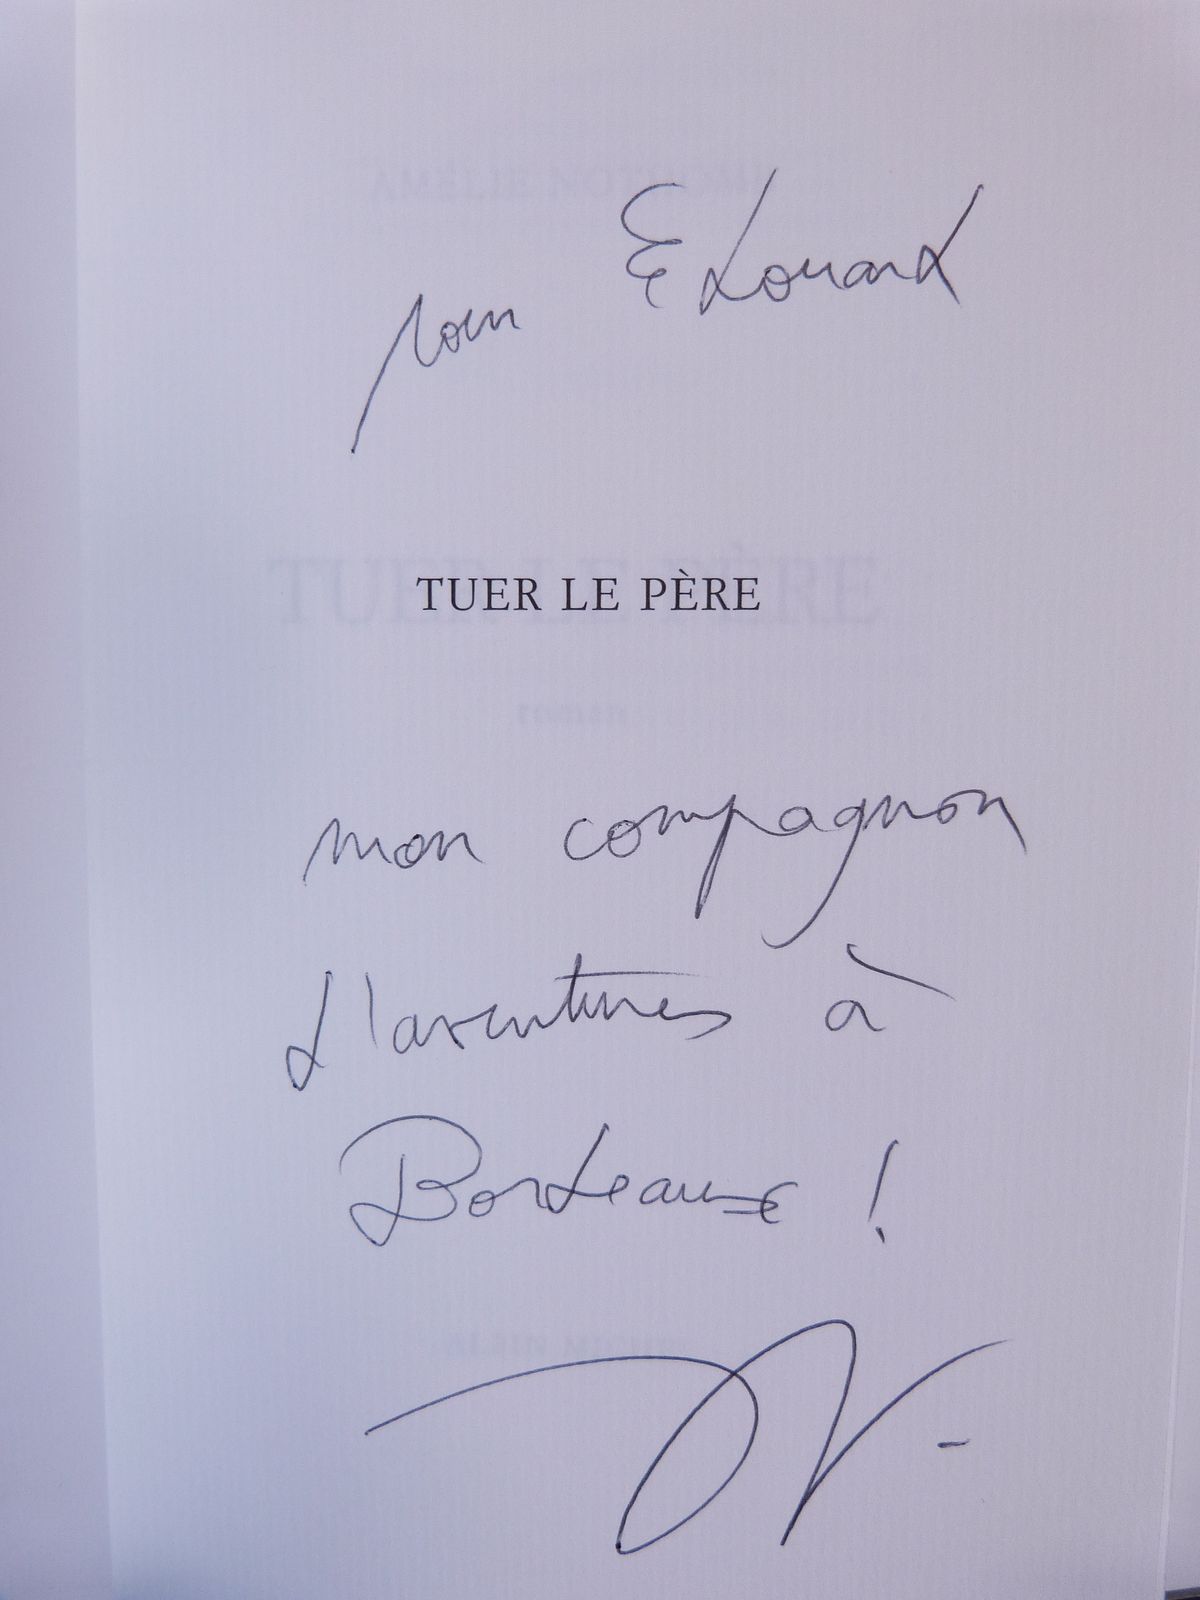 AMÉLIE NOTHOMB
pour Edouard
TUER LE PÈRE
TUER LE PÈRE
roman
mon compagnon
d'aventures à
Bordeaux !
ALBIN MICHEL